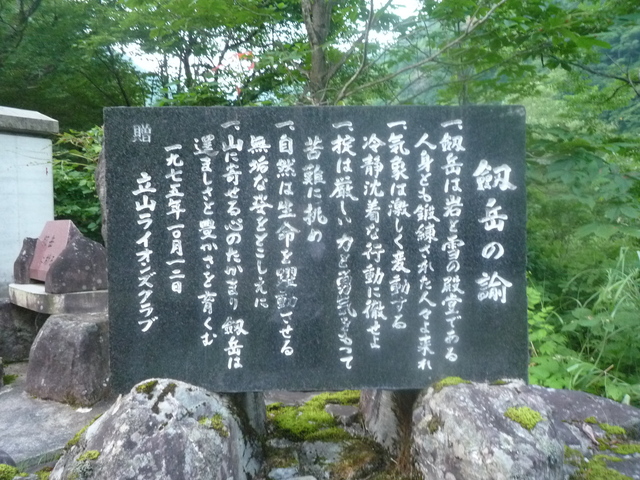 劔岳の諭
一、劔岳は岩と雪の殿堂である
人身とも鍛練された人々よ来れ
一、気象は激しく変動する
冷静沈着な行動に徹せよ
一、掟は厳しい力と勇気をもって
苦難に挑め
一、自然は生命を躍動させる
無垢な姿をとこしえに
一、山に寄せる心のたかまり劔岳は
逞ましさと豊かさを育くむ
一九七五年一〇月一二日
贈
立山ライオンズクラブ